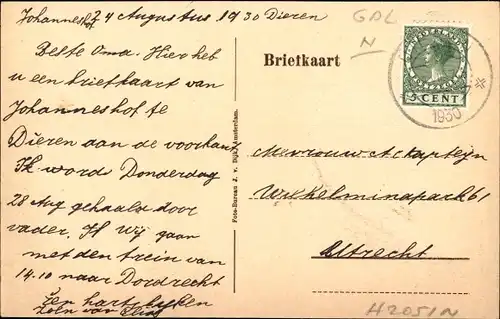 Johanneshof 24 Augustus 1930 Dieren
Beste Oma. Hier heb
u een briefkaart van
Johanneshof te
Dieren aan de voorkant
Ik word Donderdag
28 Aug gehaald door
vader. Ik wij gaan
met den trein van
14.10 naar Dordrecht
Een hartelijken
Zoen van
Foto-Bureau J. v. Dijk, Amsterdam.
GDL
N
Briefkaart
5 CENT
1930
Mevrouw
Wilhelminapark 61
Utrecht
H2051N